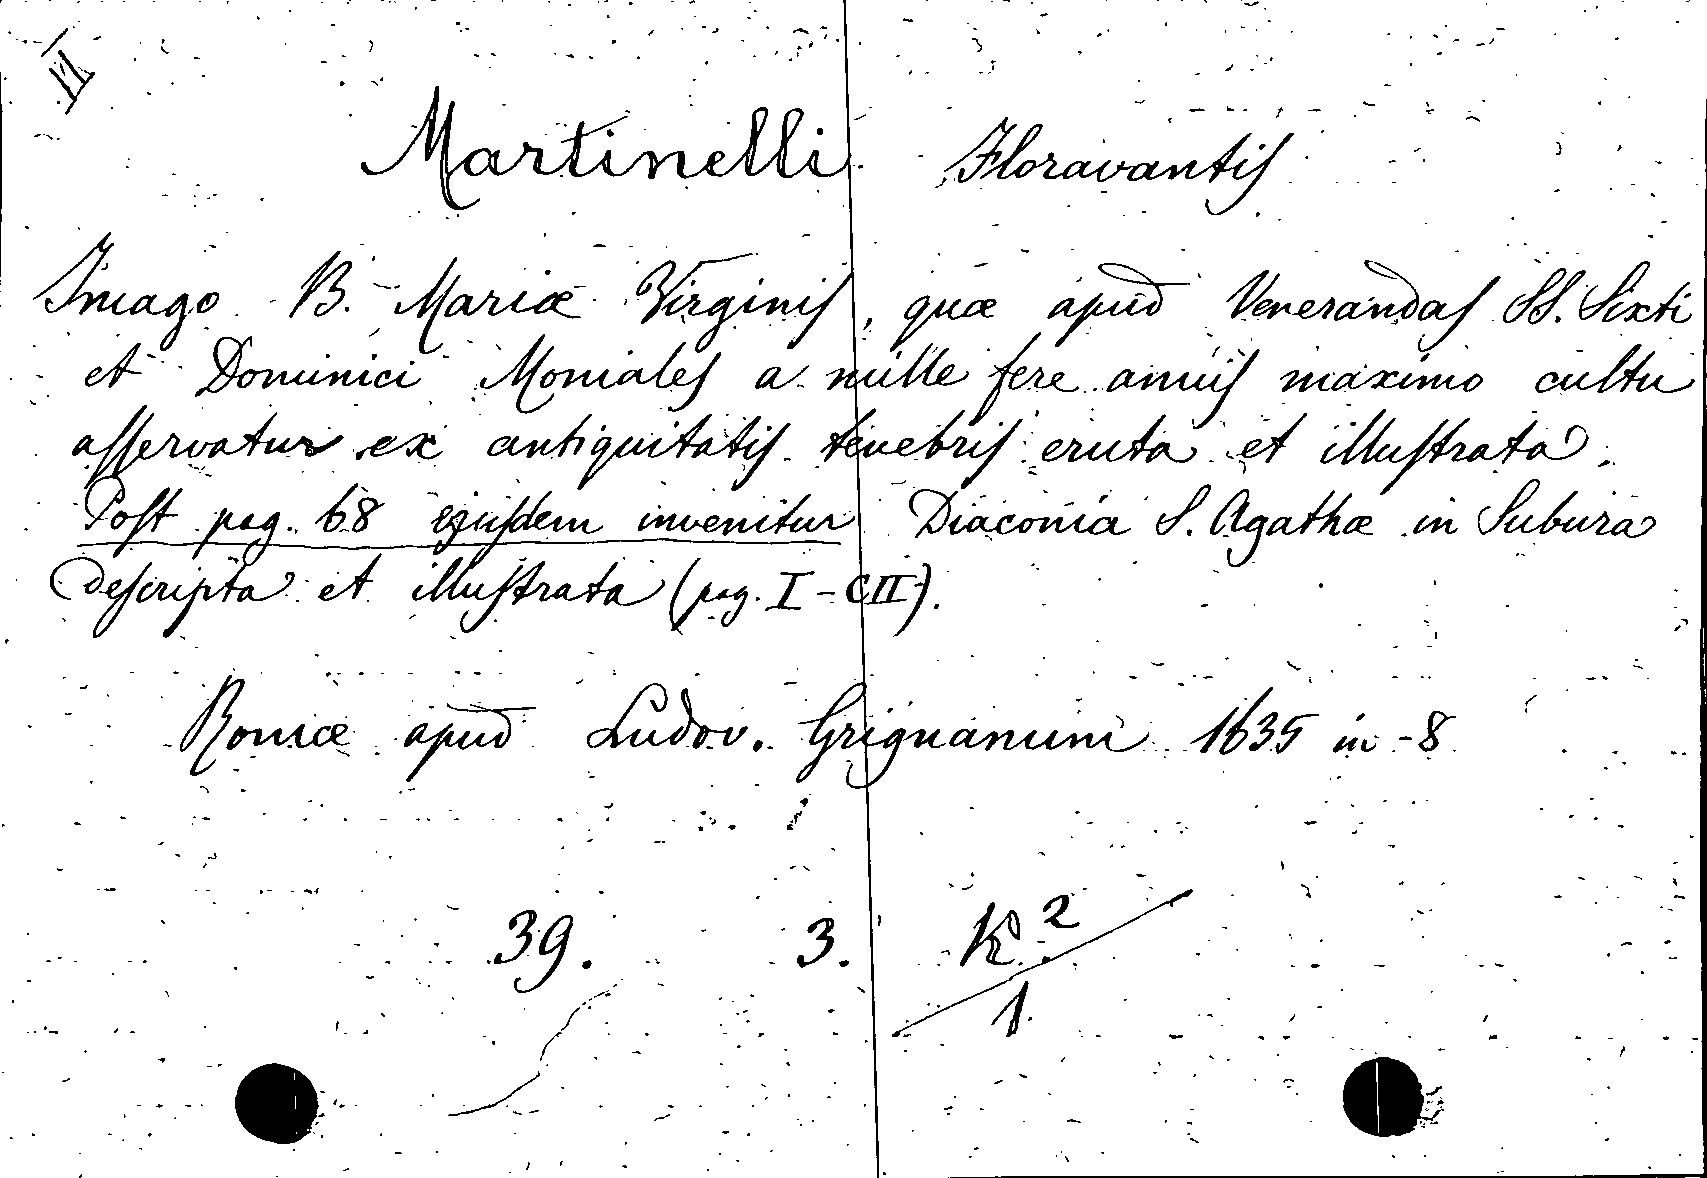 II
Martinelli Floravantis
Imago B. Mariæ Virginis, quæ apud Venerandas SS. Sixti
et Dominici Moniales a mille fere annis maximo cultu
asservatur ex antiquitatis tenebris eruta et illustrata.
Post pag. 68 ejusdem invenitur Diaconia S. Agathæ in Subura
descripta et illustrata (pag. I-CII).
Romæ apud Ludov. Grignanum 1635 in-8
39. 3. K 2
1